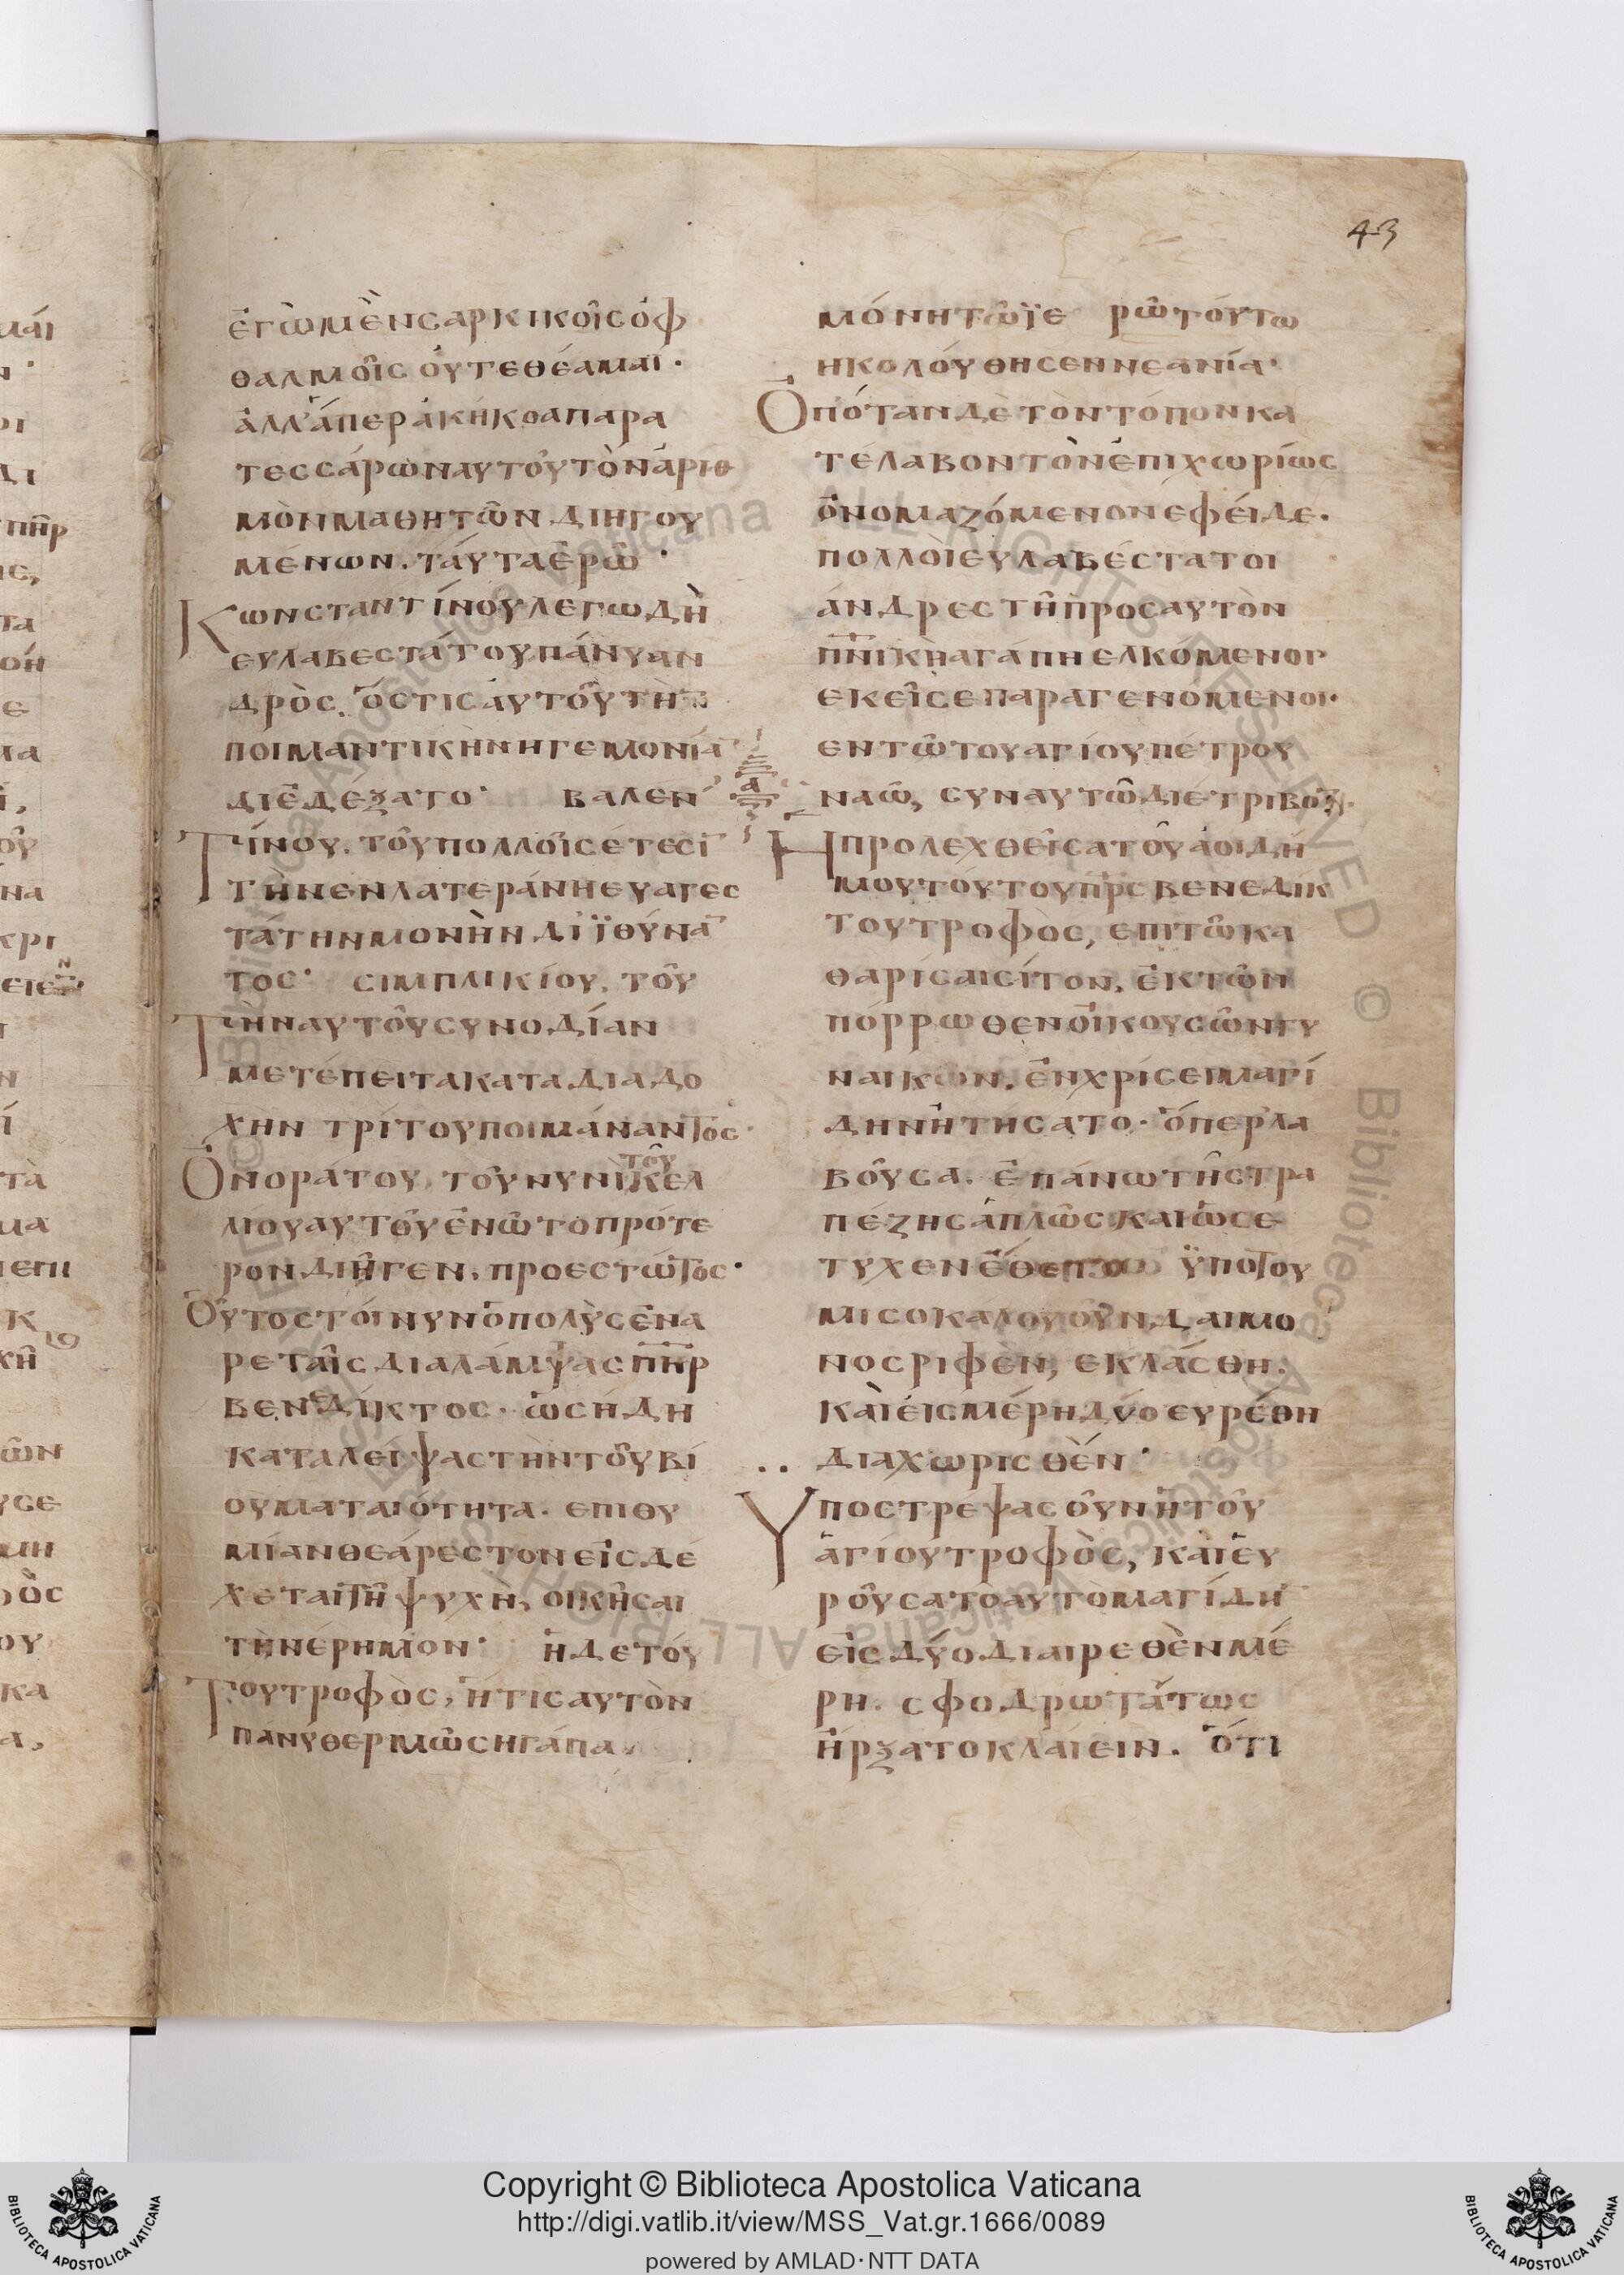 43
ἐγὼ μὲν σαρκικοῖς ὀφ
θαλμοῖς οὐ τεθέαμαι·
ἀλλ' ἅπερ ἀκήκοα παρα
τεσσάρων αὐτοῦ τὸν ἀριθ
μὸν μαθητῶν διηγου
μένων. ταύτα ἐρῶ·
Κωνσταντίνου λεγω δὴ
ευλαβεστάτου πάνυ αν
δρὸς, ὅστις αὐτοῦ τὴν
ποιμαντικὴν ηγεμονία
διεδέξατο· βαλεν
τίνου. τοῦ πολλοῖς έτεσι
τὴν εν λατεράνη ευαγεσ
τάτην μονὴν διϊθύνα
τος· σιμπλικίου, τοῦ
τὴν αυτοῦ συνοδίαν
μετέπειτα κατα διαδο
χὴν τρίτου ποιμάναντος·
Ὁνοράτου, τοῦ νυνὶ τοῦ κελ
λίου αυτοῦ ἐν ῶ το πρότε
ρον διῆγεν, προεστῶτος·
Οὗτος τοίνυν ὁ πολὺς ἐν α
ρεταῖς διαλάμψας πηρ
βενεδίκτος· ὡς ήδη
καταλείψας τὴν τοῦ βί
ου ματαιότητα. επιθυ
μίαν θεάρεστον εἰσδέ
χεται τῆ ψυχῆ, οικῆσαι
τὴν έρημον· ἡ δε τού
του τροφὸς, ἥτις αυτὸν
πάνυ θερμῶς ηγάπα,
μόνη τῶ ϊερῶ τούτω
ηκολούθησεν νεανία·
Ὁπόταν δὲ τὸν τόπον κα
τέλαβον τὸν ἐπιχωρίως
ὀνομαζόμενον εφέιδε.
πολλοὶ ευλαβέστατοι
άνδρες τῆ προς αυτὸν
πνικῆ αγάπη ελκόμενοι
εκεῖσε παραγενόμενοι·
εν τῶ του αγίου πέτρου
α
ναῶ, συν αυτῶ διέτριβον.
Ἡ προλεχθεῖσα τοῦ ἀοιδή
μου τούτου πρς βενεδίκ
του τροφὸς, επι τῶ κα
θαρίσαι σίτον, ἐκ τῶν
πόρρωθεν οἰκουσῶν γυ
ναικῶν. ἐν χρίσει μαγί
δην ἠτήσατο· ὅπερ λα
βοῦσα. ἐπάνω τῆς τρα
πέζης ἁπλῶς και ὡς έ
τυχεν ἔθετο ϋπο του
μισοκαλου οῦν δαιμο
νος ριφὲν, εκλάσθη.
καὶ εἰς μέρη δύο ευρέθη
διαχωρισθέν·
Υποστρέψας οῦν ἡ τοῦ
ἁγίου τροφὸς, καὶ ευ
ροῦσα το αυτὸ μαγίδη
εἰς δύο διαιρεθὲν μέ
ρη. σφοδρωτάτως
ἤρξατο κλαίειν. ὅτι
Copyright © Biblioteca Apostolica Vaticana
http://digi.vatlib.it/view/MSS_Vat.gr.1666/0089
powered by AMLAD·NTT DATA